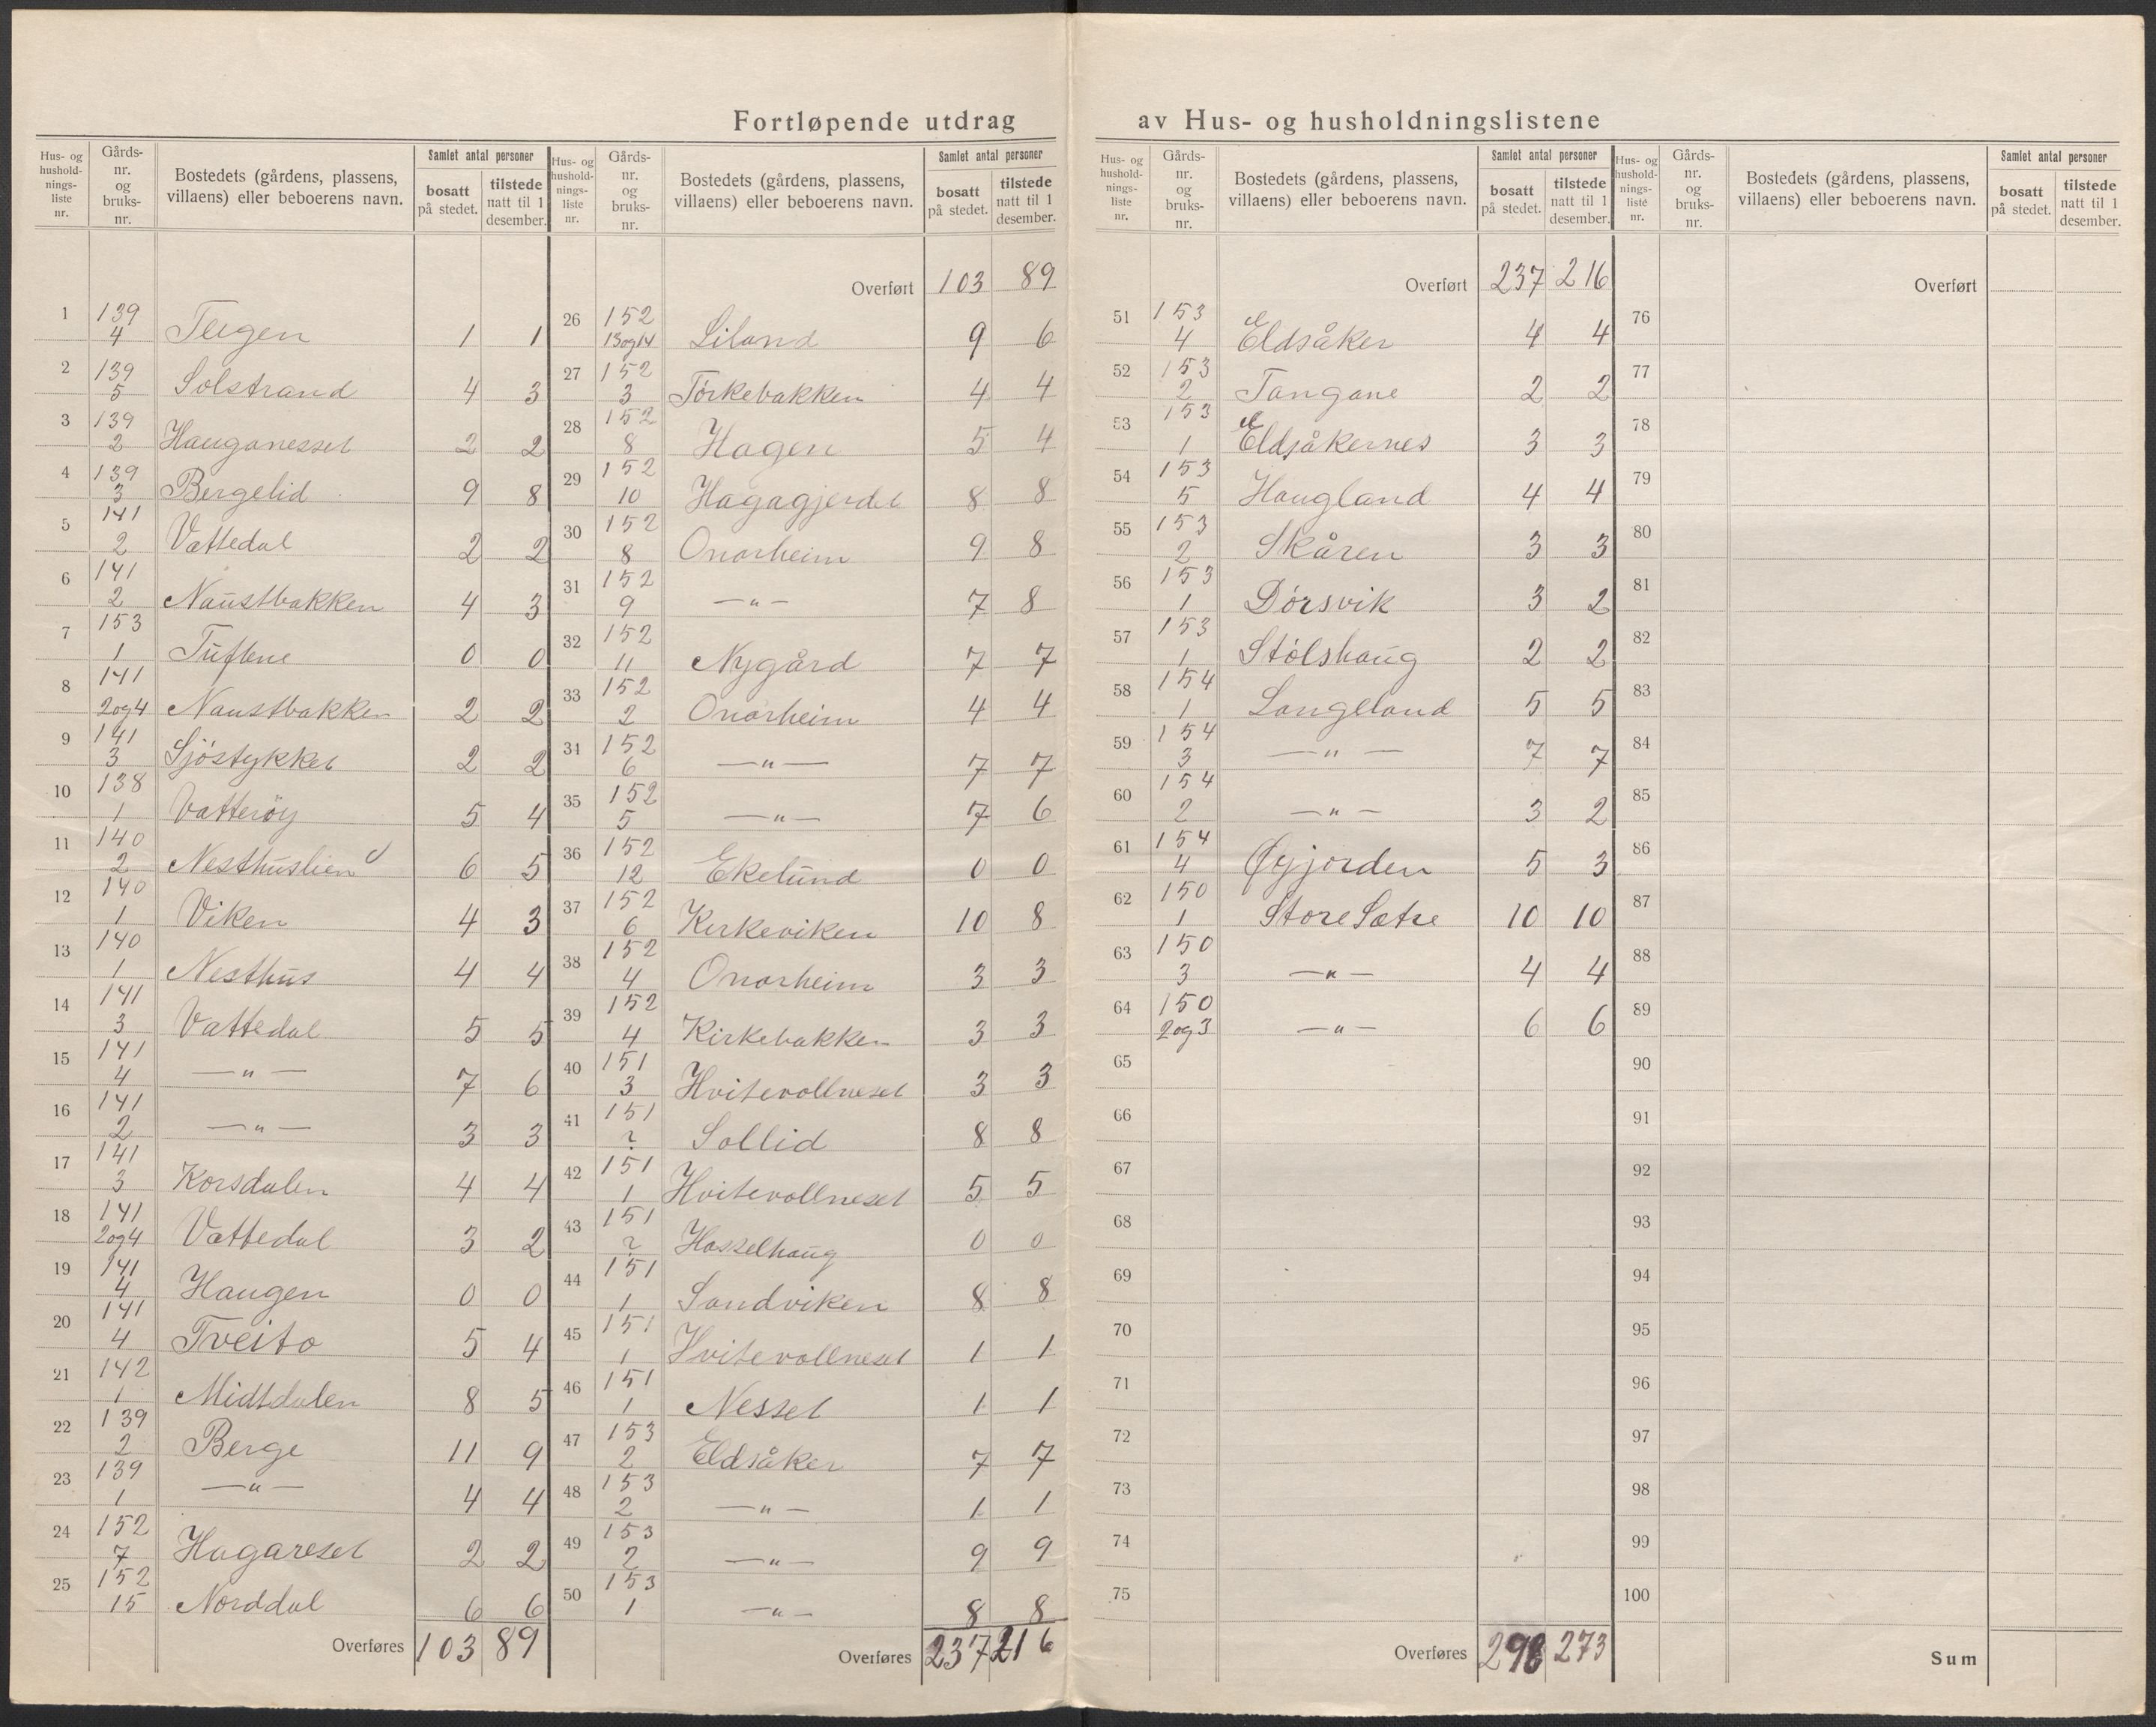 Fortløpende utdrag av Hus- og husholdningslistene
Hus- og hushold-nings-liste nr. | Gårds-nr. og bruks-nr. | Bostedets (gårdens, plassens, villaens) eller beboerens navn. | Samlet antal personer | bosatt på stedet. | tilstede natt til 1 desember.
1 139 4 Teigen 1 1
2 139 5 Solstrand 4 3
3 139 2 Hauganesset 2 2
4 139 3 Bergelid 9 8
5 141 2 Vattedal 2 2
6 141 2 Naustbakken 4 3
7 153 1 Tuftene 0 0
8 141 2og4 Naustbakken 2 2
9 141 3 Sjöstykket 2 2
10 138 1 Vatteröy 5 4
11 140 2 Nesthuslien 6 5
12 140 1 Viken 4 3
13 140 1 Nesthus 4 4
14 141 3 Vattedal 5 5
15 141 4 —"— 7 6
16 141 2 —"— 3 3
17 141 3 Korsdalen 4 4
18 141 2og4 Vattedal 3 2
19 141 4 Haugen 0 0
20 141 4 Tveito 5 4
21 142 1 Midtdalen 8 5
22 139 2 Berge 11 9
23 139 1 —"— 4 4
24 152 7 Hagareset 2 2
25 152 15 Norddal 6 6
Overføres 103 89
Hus- og hushold-nings-liste nr. | Gårds-nr. og bruks-nr. | Bostedets (gårdens, plassens, villaens) eller beboerens navn. | Samlet antal personer | bosatt på stedet. | tilstede natt til 1 desember.
Overført 103 89
26 152 13og14 Liland 9 6
27 152 3 Törkebakken 4 4
28 152 8 Hagen 5 4
29 152 10 Hagagjerdet 8 8
30 152 8 Onarheim 9 8
31 152 9 —"— 7 8
32 152 11 Nygård 7 7
33 152 2 Onarheim 4 4
34 152 6 —"— 7 7
35 152 5 —"— 7 6
36 152 12 Ekelund 0 0
37 152 6 Kirkeviken 10 8
38 152 4 Onarheim 3 3
39 152 4 Kirkebakken 3 3
40 151 3 Hvitevollneset 3 3
41 151 ? Sollid 8 8
42 151 1 Hvitevollneset 5 5
43 151 ? Hasselhaug 0 0
44 151 1 Sandviken 8 8
45 151 1 Hvitevollneset 1 1
46 151 1 Nesset 1 1
47 153 2 Eldsåker 7 7
48 153 2 —"— 1 1
49 153 2 —"— 9 9
50 153 1 —"— 8 8
Overføres 237 216
Hus- og hushold-nings-liste nr. | Gårds-nr. og bruks-nr. | Bostedets (gårdens, plassens, villaens) eller beboerens navn. | Samlet antal personer | bosatt på stedet. | tilstede natt til 1 desember.
Overført 237 216
51 153 4 Eldsåker 4 4
52 153 2 Tangane 2 2
53 153 1 Eldsåkernes 3 3
54 153 5 Haugland 4 4
55 153 2 Skåren 3 3
56 153 1 Dörsvik 3 2
57 153 1 Stölshaug 2 2
58 154 1 Langeland 5 5
59 154 3 —"— 7 7
60 154 2 —"— 3 2
61 154 4 Øyjorden 5 3
62 150 1 Store Sætre 10 10
63 150 3 —"— 4 4
64 150 2og3 —"— 6 6
65
66
67
68
69
70
71
72
73
74
75
Overføres 298 273
Hus- og hushold-nings-liste nr. | Gårds-nr. og bruks-nr. | Bostedets (gårdens, plassens, villaens) eller beboerens navn. | Samlet antal personer | bosatt på stedet. | tilstede natt til 1 desember.
Overført
76
77
78
79
80
81
82
83
84
85
86
87
88
89
90
91
92
93
94
95
96
97
98
99
100
Sum